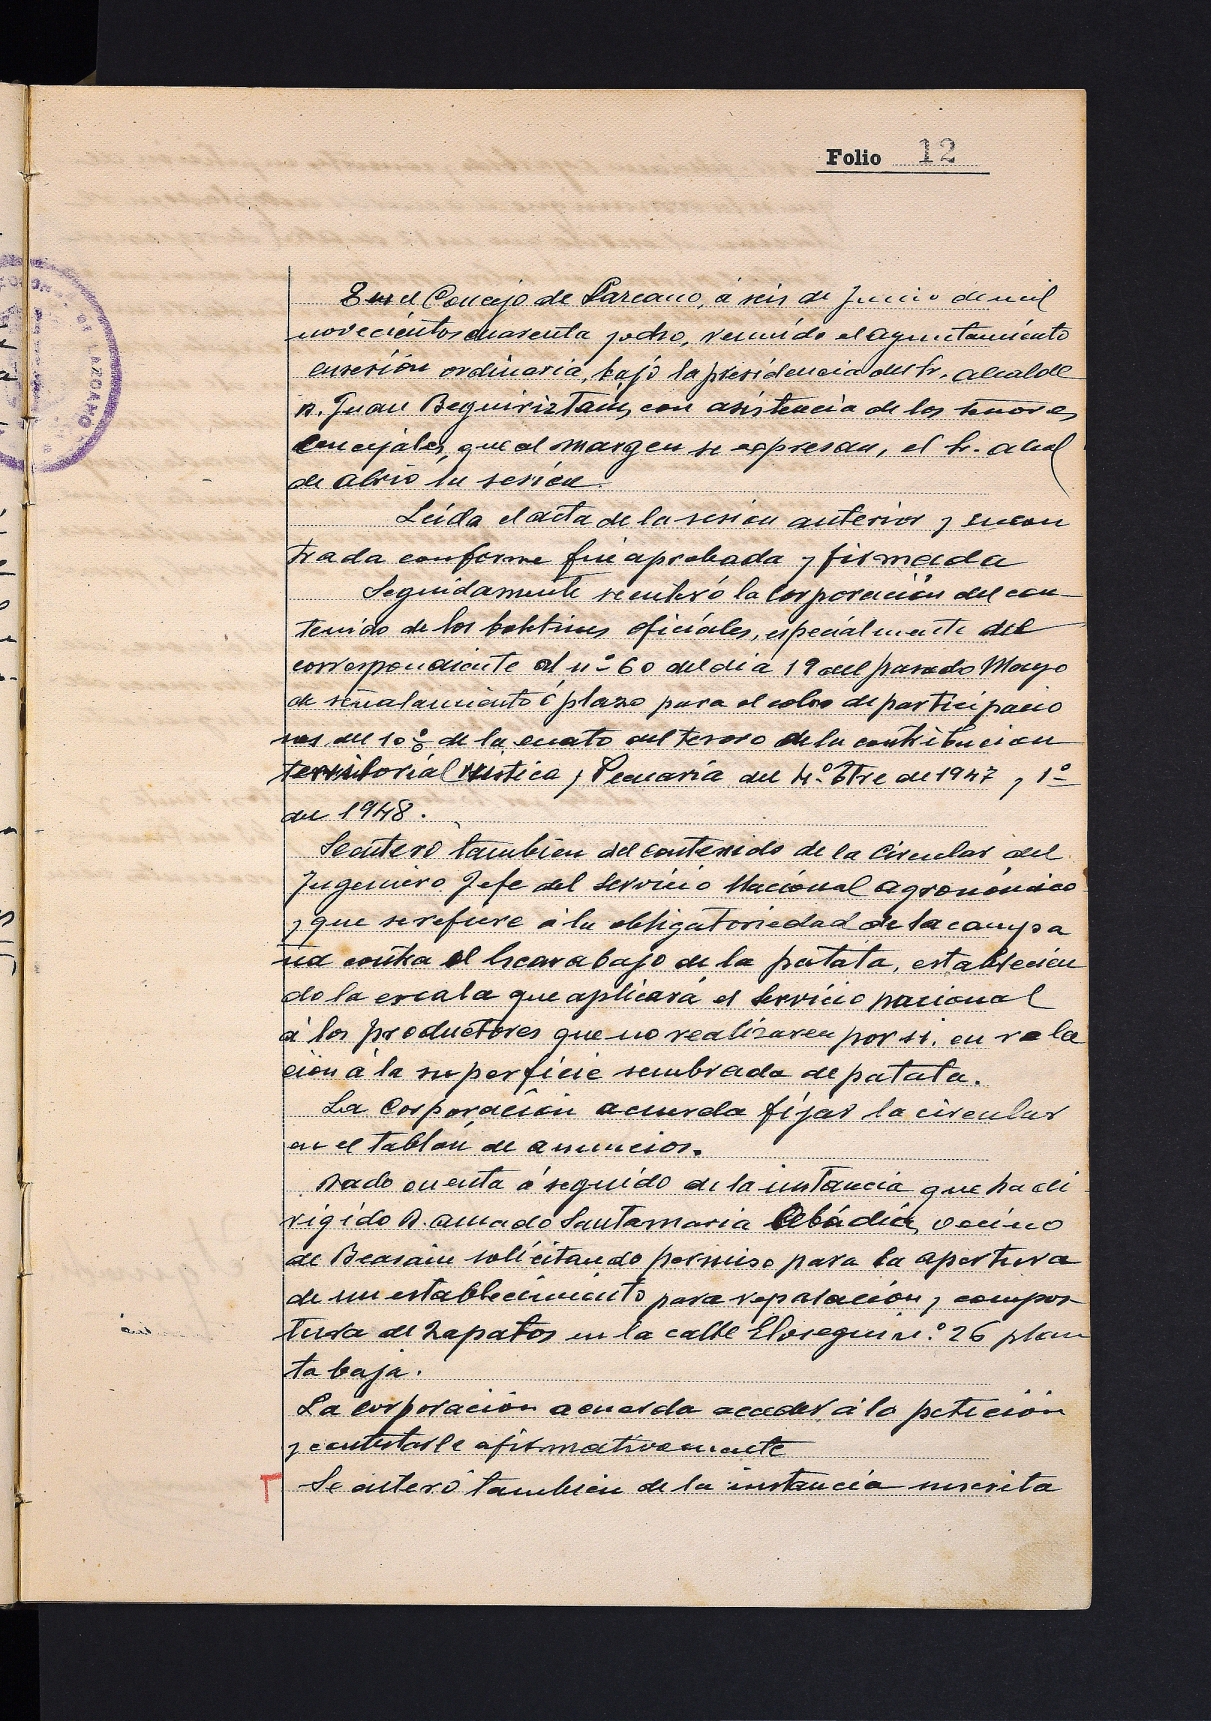 Folio 12
En el Concejo de Lazcano, á seis de Junio de mil
novecientos cuarenta y ocho, reunido el Ayuntamiento
en sesión ordinaria, bajo la presidencia del Sr. Alcalde
D. Juan Beguiristain, con asistencia de los señores
Concejales, que al margen se expresan, el Sr. Alcal
de abrió la sesión.
Leida el acta de la sesion anterior y encon
trada conforme fué aprobada y firmada
Seguidamente se enteró la Corporación del con-
tenido de los boletines oficiales, especialmente del
correspondiente al nº 60 del dia 19 del pasado Mayo
de señalamiento ó plazo para el cobro de participacio
nes del 10% de la cuota del tesoro de la contribucion
territorial Rústica y Pecuaria del 4º Trtre de 1947 y 1º
de 1948.
Se enteró tambien del contenido de la Circular del
Ingeniero Jefe del Servicio Nacional Agronómico
y que se refiere á la obligatoriedad de la campa
ña contra el escarabajo de la patata, establecien
do la escala que aplicará el Servicio Nacional
á los productores que no realizaren por si, en rela
ción á la superficie sembrada de patata.
La Corporación acuerda fijar la circular
en el tablón de anuncios.
Dado cuenta á seguido de la instancia que ha di
rigido D. Amado Santamaria Abádia, vecino
de Beasain solicitando permiso para la apertura
de un establecimiento para reparación y compos-
tura de zapatos en la calle Elosegui n.º 26 plan
ta baja.
La Corporación acuerda acceder á la petición
y contestarle afirmativamente
Se enteró tambien de la instancia suscrita